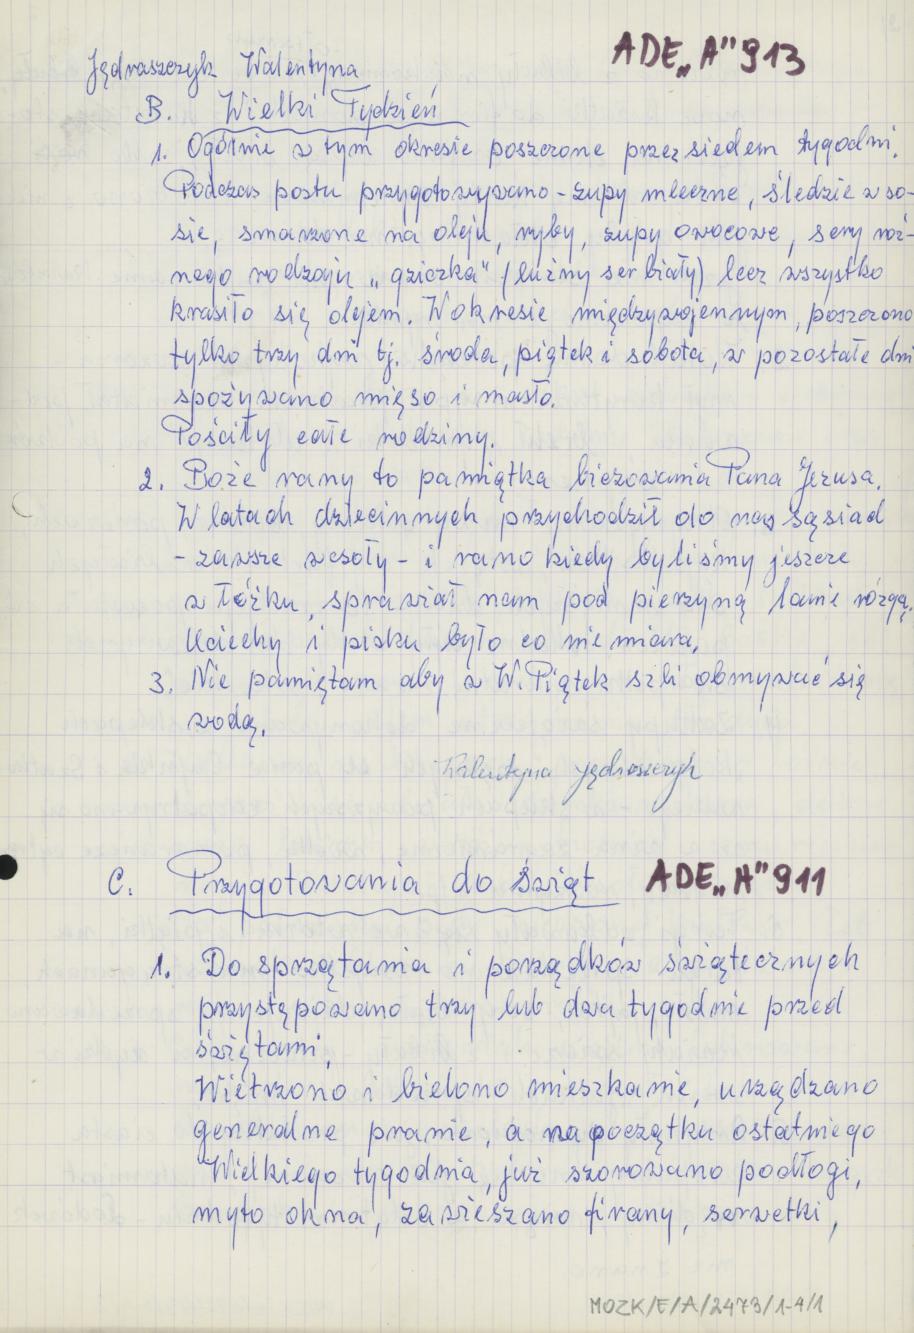 ADE „A” 913
Jędraszczyk Walentyna
B. Wielki Tydzień
1. Ogólnie w tym okresie poszczono przez siedem tygodni.
Podczas postu przygotowywano - zupy mleczne, śledzie w so-
sie, smażone na oleju, ryby, zupy owocowe, sery róż-
nego rodzaju „gziczka” (luźny ser biały) lecz wszystko
krasiło się olejem. W okresie międzywojennym, poszczono
tylko trzy dni tj. środa, piątek i sobota, w pozostałe dni
spożywano mięso i masło.
Pościły całe rodziny.
2. Boże rany to pamiątka biczowania Pana Jezusa.
W latach dziecinnych przychodził do nas sąsiad
- zawsze wesoły - i rano kiedy byliśmy jeszcze
w łóżku, sprawiał nam pod pierzyną lanie rózgą.
Uciechy i pisku było co nie miara.
3. Nie pamiętam aby w W. Piątek szli obmywać się
wodą.
Walentyna Jędraszczyk
C. Przygotowania do świąt ADE „A” 911
1. Do sprzątania i porządków świątecznych
przystępowano trzy lub dwa tygodnie przed
świętami.
Wietrzono i bielono mieszkanie, urządzano
generalne pranie, a na początku ostatniego
Wielkiego tygodnia, już szorowano podłogi,
myto okna, zawieszano firany, serwetki,
MOZK/E/A/2473/1-4/1